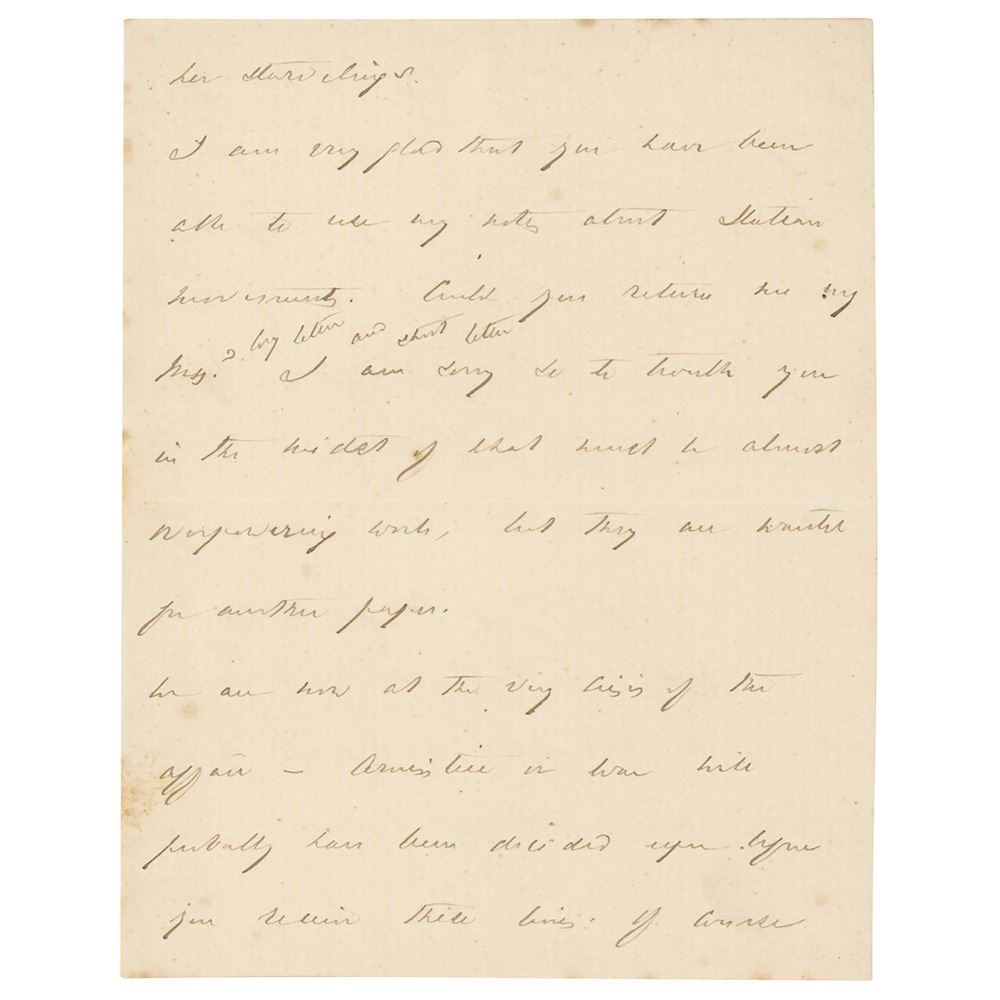 her
I am very glad that you have been
able to use my notes about Italian
movements. Could you return me my
long letter and short letter
Mss.? I am sorry so to trouble you
in the midst of what must be almost
overpowering work, but they are wanted
for another paper.
We are now at the very crisis of the
affair — Armistice or war will
probably have been decided upon before
you receive these lines. Of course